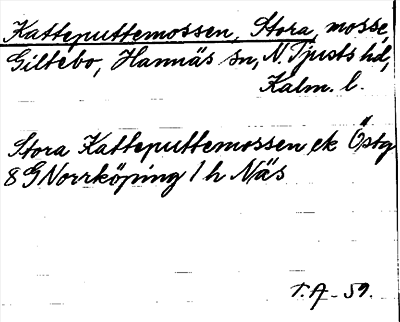 Katteputtemossen, Stora, mosse,
Giltebo, Hannäs sn, N. Tjusts hd,
Kalm. l.
Stora Katteputtemossen ek Östg
8 G Norrköping 1 h Näs
T.A - 59.